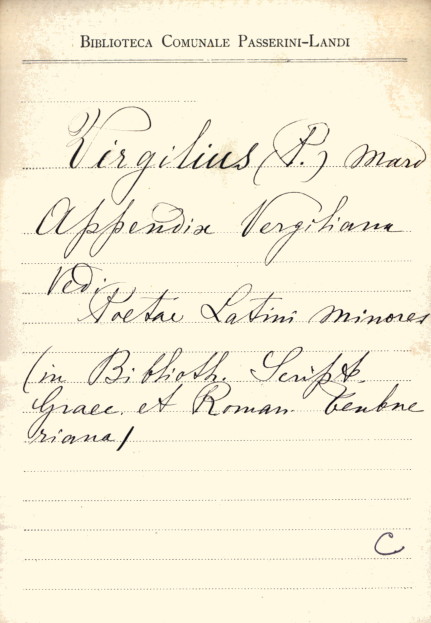 BIBLIOTECA COMUNALE PASSERINI-LANDI
Virgilius (P.) Maro
Appendix Vergiliana
Vedi
Poetae Latini minores
(in Biblioth. Script.
Graec. et Roman. Teubne
riana)
C